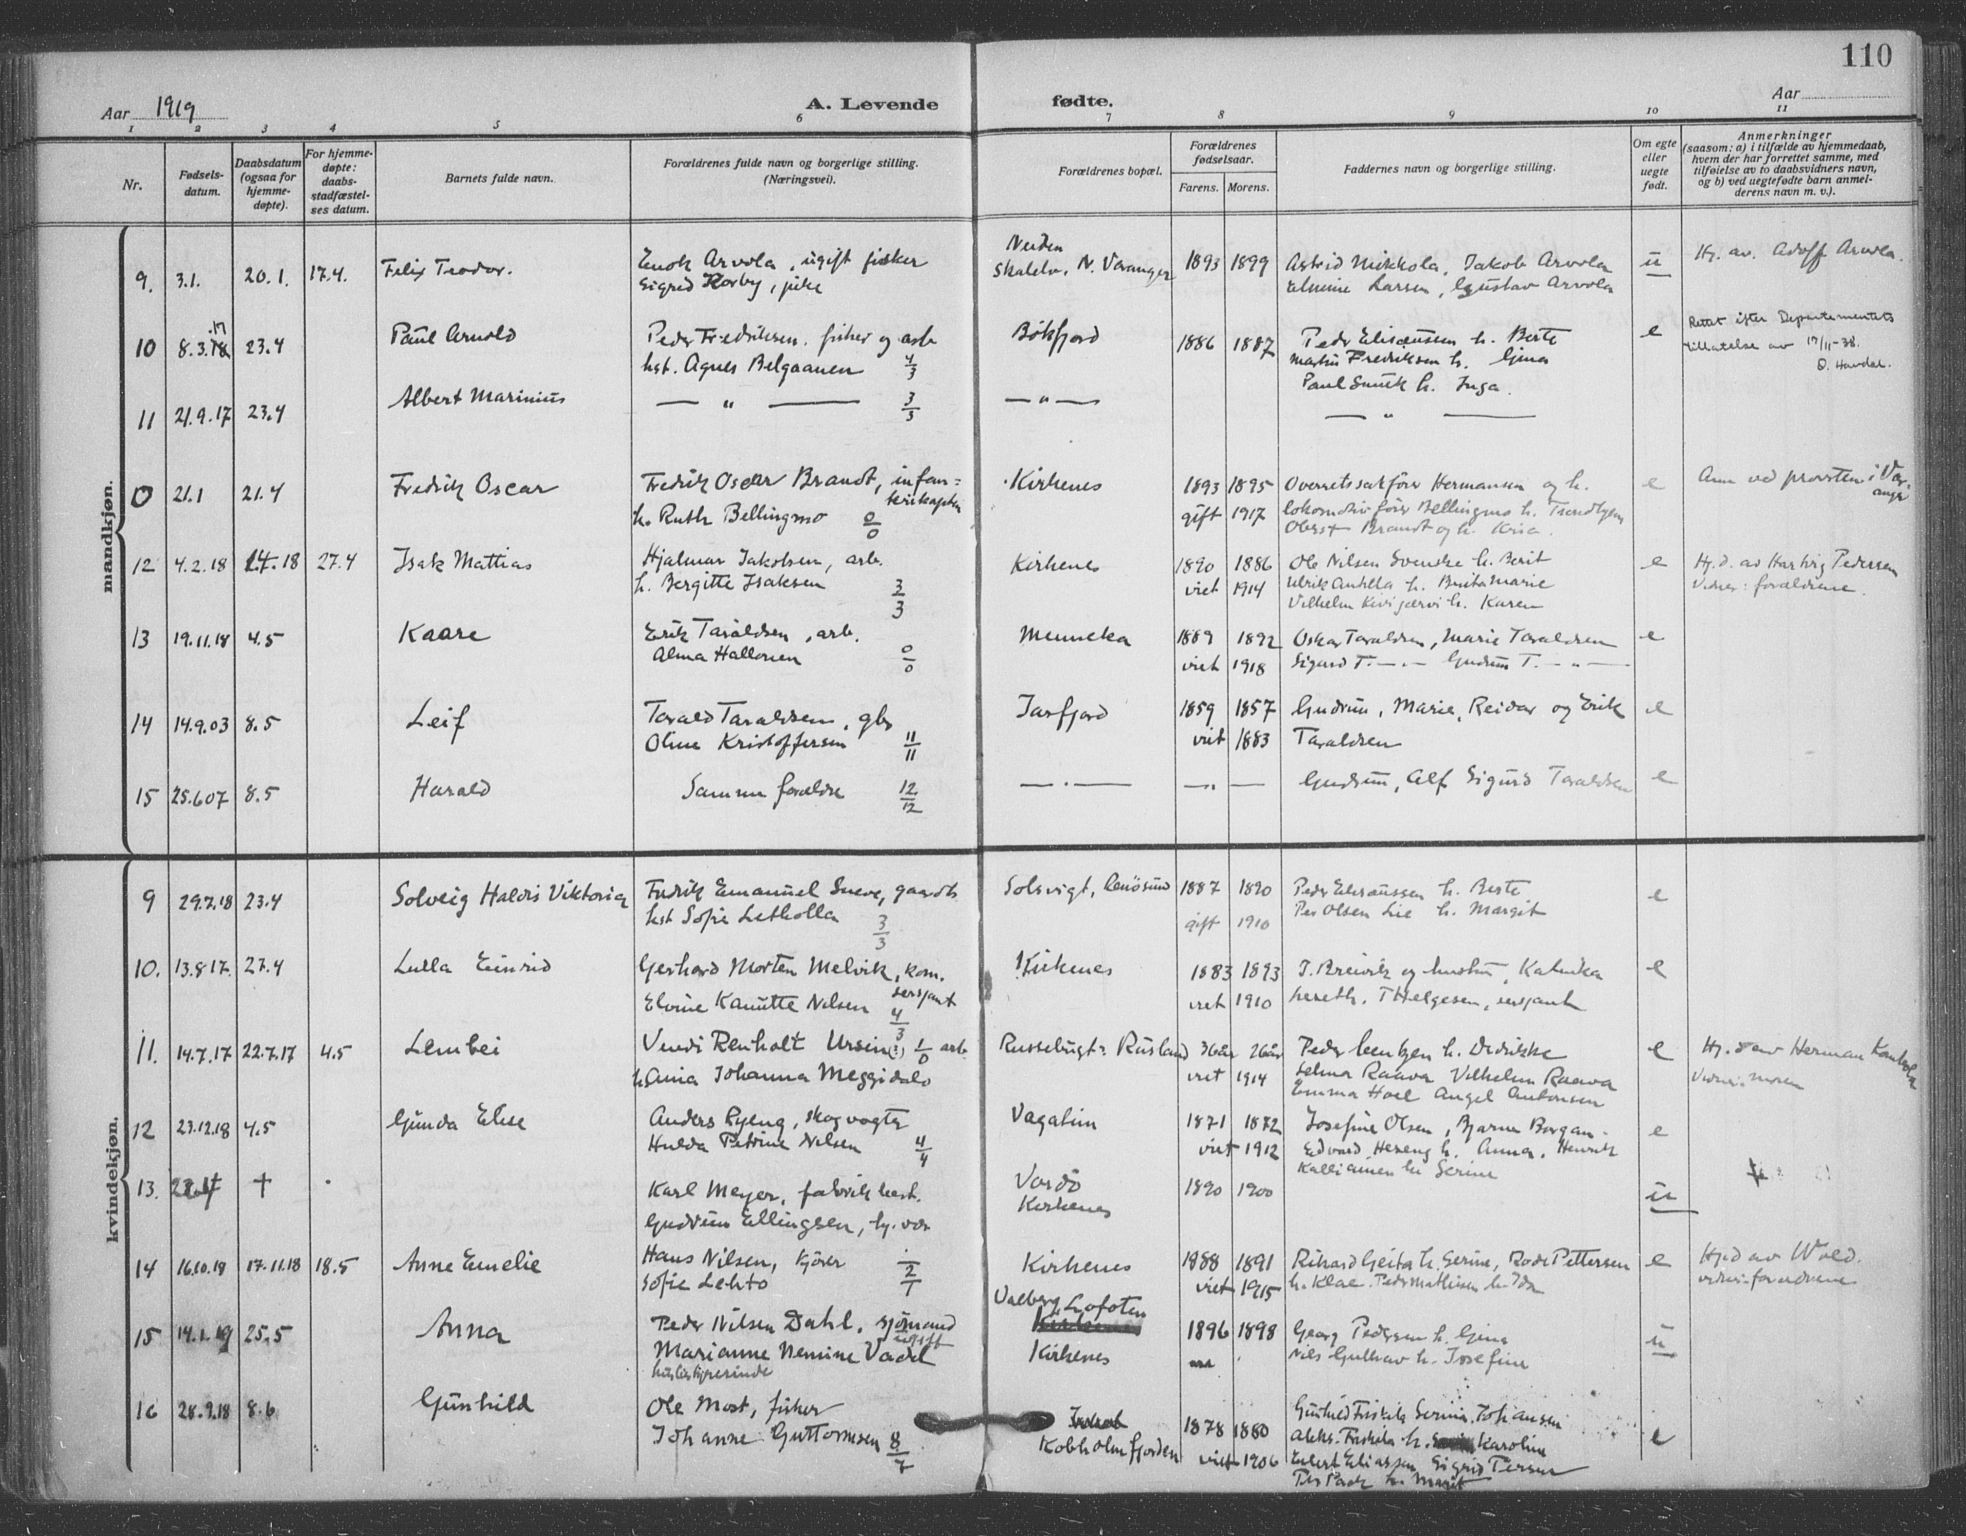 110
Aar 1919
A. Levende fødte.
Aar
1 2 3 4 5 6 7 8 9 10 11
Nr.
Fødsels-datum.
Daabsdatum (ogsaa for hjemme-døpte).
For hjemme-døpte: daabs-stadfæstel-ses datum.
Barnets fulde navn.
Forældrenes fulde navn og borgerlige stilling. (Næringsvei).
Forældrenes bopæl.
Forældrenes fødselsaar.
Farens. Morens.
Faddernes navn og borgerlige stilling.
Om egte eller uegte født.
Anmerkninger (saasom: a) i tilfælde av hjemmedaab, hvem der har forrettet samme, med tilføielse av to daabsvidners navn, og b) ved uegtefødte barn anmel-derens navn m. v.).
mandkjøn.
9. 3.1. 20.1. 17.4. Felix Teodor. Enok Arvola, ugift fisker Neiden 1893 1899 Astrid Mikkola, Jakob Arvola u Hj. av. Adolf Arvola.
Sigred Korby, pike Skalelv, N. Varanger Larsen, Gustav Arvola
10 8.3. 23.4 Paul Arnold Peder Fredriksen. fisker og arb. Bøkfjord 1886 1887 Peder Elisæussen h. Berte e Rettet efter Departementets
hst. Agnes Belgaanen 4/3 Martin Fredriksen h. Gina tillatelse av 17/11-38.
Paul h. Inga. O. Havdal.
11 21.9.17 23.4 Albert Marinius — " — 3/3 — " — — " —
0 21.1 21.4 Fredrik Oscar Fredrik Oscar Brandt, infan- Kirkenes 1893 1895 Overretssakfører Hermansen og h. e Anm ved provsten i Var-
h. Ruth Bellingmo 0/0 gift 1917 lokomotivfører Bellingmo h. Trondhjem anger
Oberst Brandt og h. Kria.
12 4.2.18 18 27.4 Isak Mattias Hjalmar Jakobsen, arb. Kirkenes 1890 1886 Ole Nilsen Svenske h. Berit e Hj.d. av Hartvig Pedersen
h. Bergitte Isaksen 3/3 viet 1914 Ulrik Anttila h. Brita Marie Vidner: forældrene.
Vilhelm Kivijærvi h. Karen
13 19.11.18 4.5 Kaare Erik Taraldsen, arb. Menneka 1889 1892 Oskar Taraldsen, Marie Taraldsen e
Alma Hallonen 0/0 viet 1918 Sigurd T. — " — Gudrun T. — " —
14 14.9.03 8.5 Leif Tarald Taraldsen, gbr Jarfjord 1859 1857 Gudrun, Marie, Reidar og Erik e
Oline Kristoffersen 11/11 viet 1883 Taraldsen
15 25.6.07 8.5 Harald Samme forældre 12/12 — " — — " — Gudrun, Alf Sigurd Taraldsen e
kvindekjøn.
9 29.7.18 23.4 Solveig Haldis Viktoria Fredrik Emanuel Sneve, gaardb. Solsvigt, Renøsund 1887 1890 Peder Elisæussen h. Berte e
hst Sofie Letholla 3/3 gift 1910 Per Olsen Lie h. Margit
10. 13.8.17. 27.4 Lulla Einrid Gerhard Morten Melvik, kom. Kirkenes 1883 1893 J. Breivik og hustru, Katinka e
sersjant
Elvine Kanutte Nilsen 4/3 viet 1910 T Helgesen, sersjant
11. 14.7.17 22.7.17 4.5 Lembei Vendi Renholt Ursin 1/0 arb. Russebugt: Rusland 36 år 26 år Peder h. Didrikke e Hj. d av Herman
h. Ania Johanna Meggidalo viet 1914 Selma Raava Vilhelm Raava Vidner: moren
Emma Hoel Angel Antonsen
12 23.12.18 4.5 Gunda Elise Anders Ryeng, skogvogter Vagatim 1871 1872 Josefine Olsen, Bjarne Borgan- e
Hulda Petrine Nilsen 4/4 viet 1912 Edvard Heseng h. Anna. Henrik
Kalliainen h. Serine
13. + Karl Meyer, fabrik best. Vardø 1890 1900 u
Gudrun Ellingsen, Kirkenes
14 16.10.18 17.11.18 18.5 Anne Emelie Hans Nilsen, kjører Kirkenes 1888 1891 Rikard Geita h. Serine, Pettersen e Hj.d av Wold.
Sofie Lehto 2/1 viet 1915 h. Klae. Peder Mathisen h. Ida vidner: forældrene
15 14.1.19 25.5 Anna Peder Nilsen Dahl, sjømand Valberg Lofoten 1896 1898 Georg Pedersen h. Gina u
ugift
Marianne Nemine Vadet Kirkenes Nils Gullhav h. Josefine
16 28.9.18 8.6 Gunhild Ole Most, fisker 1878 1880 Gunhild Friskilæ Serine Johansen e
Johanne Guttormsen 8/7 Kobholmfjorden viet 1906 Aleks. Friskilæ h. Karoline
Eilert Eliassen Sigrid Persen
h. Marit